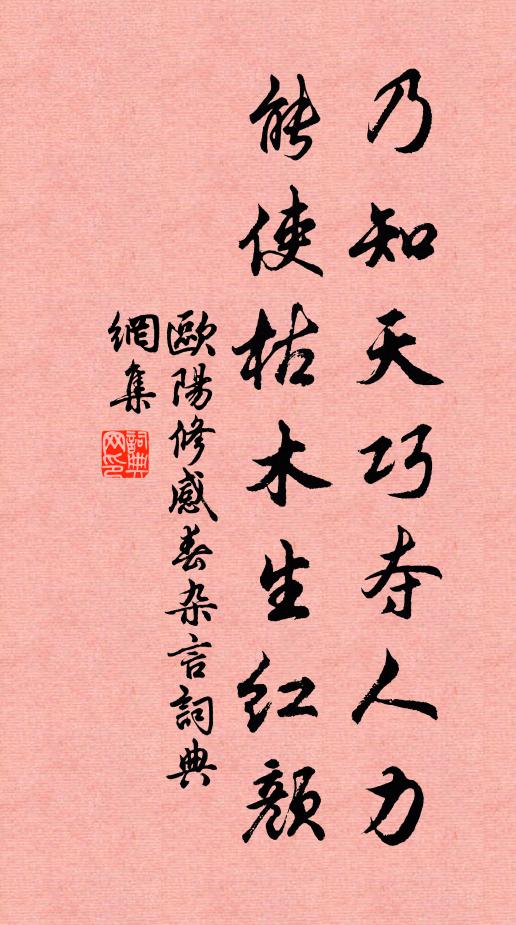 乃知天巧夺人力
能使枯木生红颜
歐陽修感春杂言詞典
網集
詞典
网印